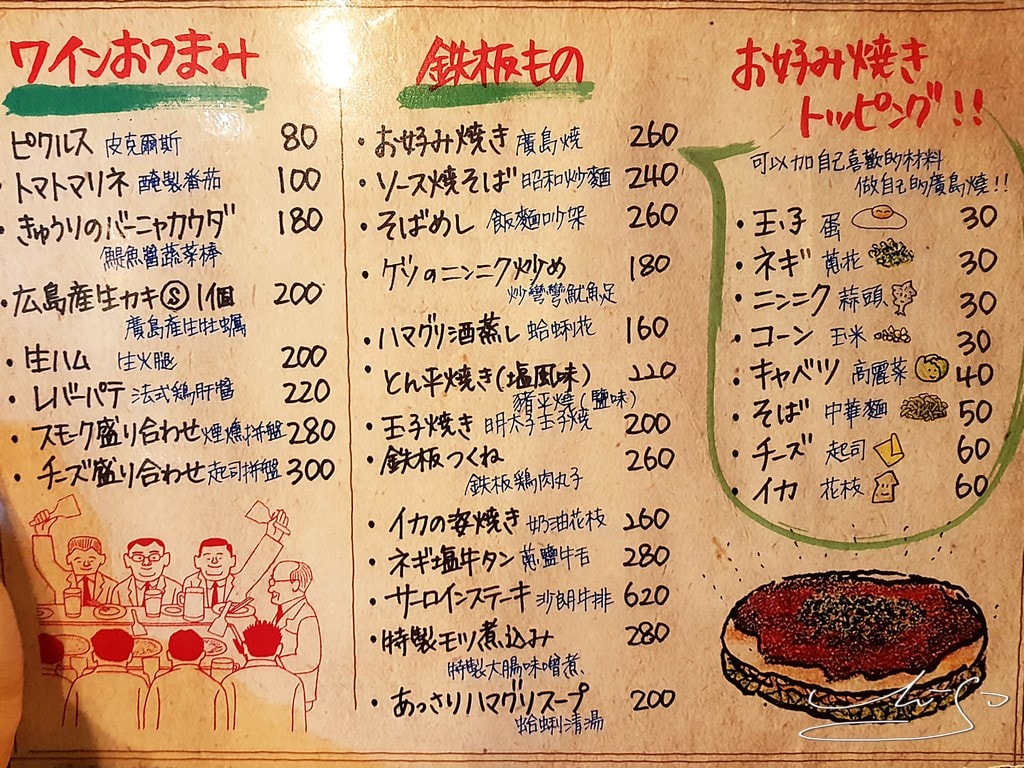 ワインおつまみ
ピクルス 皮克爾斯 80
・トマトマリネ 醃製番茄 100
・きゅうりのバーニャカウダ 180
鯷魚醬蔬菜棒
・広島産生カキⓈ1個 200
廣島産生牡蠣
・生ハム 生火腿 200
・レバーパテ 法式鶏肝醬 220
・スモーク盛り合わせ 煙燻拼盤 280
・チーズ盛り合わせ 起司拼盤 300
鉄板もの
・お好み焼き 廣島燒 260
・ソース焼そば 昭和炒麵 240
・そばめし 飯麵吵架 260
・ゲソのニンニク炒め 180
炒彎彎魷魚足
・ハマグリ酒蒸し 蛤蜊花 160
・とん平焼き(塩風味) 220
豬平燒(鹽味)
・玉子焼き 明太子玉子燒 200
・鉄板つくね 260
鉄板鶏肉丸子
・イカの姿焼き 奶油花枝 260
・ネギ塩牛タン 蔥鹽牛舌 280
・サーロインステーキ 沙朗牛排 620
・特製モツ煮込み 280
特製大腸味噌煮
・あっさりハマグリスープ 200
蛤蜊清湯
お好み焼き
トッピング!!
可以加自己喜歡的材料
做自己的廣島燒!!
・玉子 蛋 30
・ネギ 蔥花 30
・ニンニク 蒜頭 30
・コーン 玉米 30
・キャベツ 高麗菜 40
・そば 中華麵 50
・チーズ 起司 60
・イカ 花枝 60